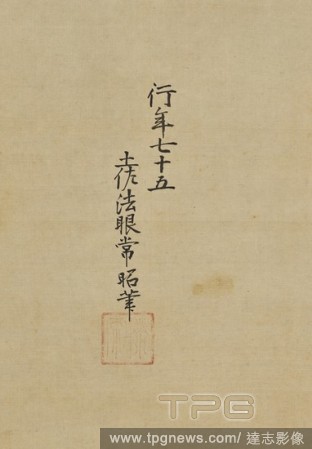 行年七十五
土佐法眼常昭筆
TPG
www.tpgnews.com/達志影像